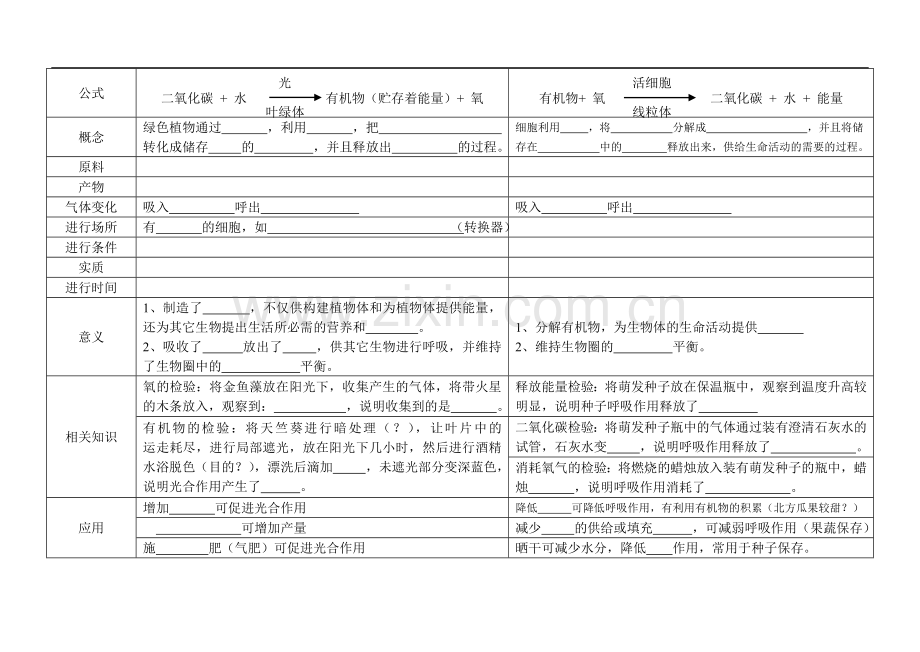 公式
光
二氧化碳 + 水 有机物（贮存着能量）+ 氧
叶绿体
活细胞
有机物+ 氧 二氧化碳 + 水 + 能量
线粒体
概念
绿色植物通过______，利用______，把________________
转化成储存_____的________，并且释放出_________的过程。
细胞利用____，将_________分解成______________，并且将储
存在_________中的______释放出来，供给生命活动的需要的过程。
原料
产物
气体变化
吸入_________呼出_____________
吸入_________呼出_____________
进行场所
有______的细胞，如_________________________（转换器）
进行条件
实质
进行时间
意义
1、制造了______，不仅供构建植物体和为植物体提供能量，
还为其它生物提出生活所必需的营养和_______。
2、吸收了_____放出了____，供其它生物进行呼吸，并维持
了生物圈中的__________平衡。
1、分解有机物，为生物体的生命活动提供______
2、维持生物圈的________平衡。
相关知识
氧的检验：将金鱼藻放在阳光下，收集产生的气体，将带火星
的木条放入，观察到：_________，说明收集到的是______。
有机物的检验：将天竺葵进行暗处理（？），让叶片中的
运走耗尽，进行局部遮光，放在阳光下几小时，然后进行酒精
水浴脱色（目的？），漂洗后滴加____，未遮光部分变深蓝色，
说明光合作用产生了_____。
释放能量检验：将萌发种子放在保温瓶中，观察到温度升高较
明显，说明种子呼吸作用释放了________
二氧化碳检验：将萌发种子瓶中的气体通过装有澄清石灰水的
试管，石灰水变____，说明呼吸作用释放了___________。
消耗氧气的检验：将燃烧的蜡烛放入装有萌发种子的瓶中，蜡
烛_______，说明呼吸作用消耗了___________。
应用
增加______可促进光合作用
___________可增加产量
施_______肥（气肥）可促进光合作用
降低____可降低呼吸作用，有利用有机物的积累（北方瓜果较甜？）
减少____的供给或填充_____，可减弱呼吸作用（果蔬保存）
晒干可减少水分，降低___作用，常用于种子保存。
www.zixin.com.cn